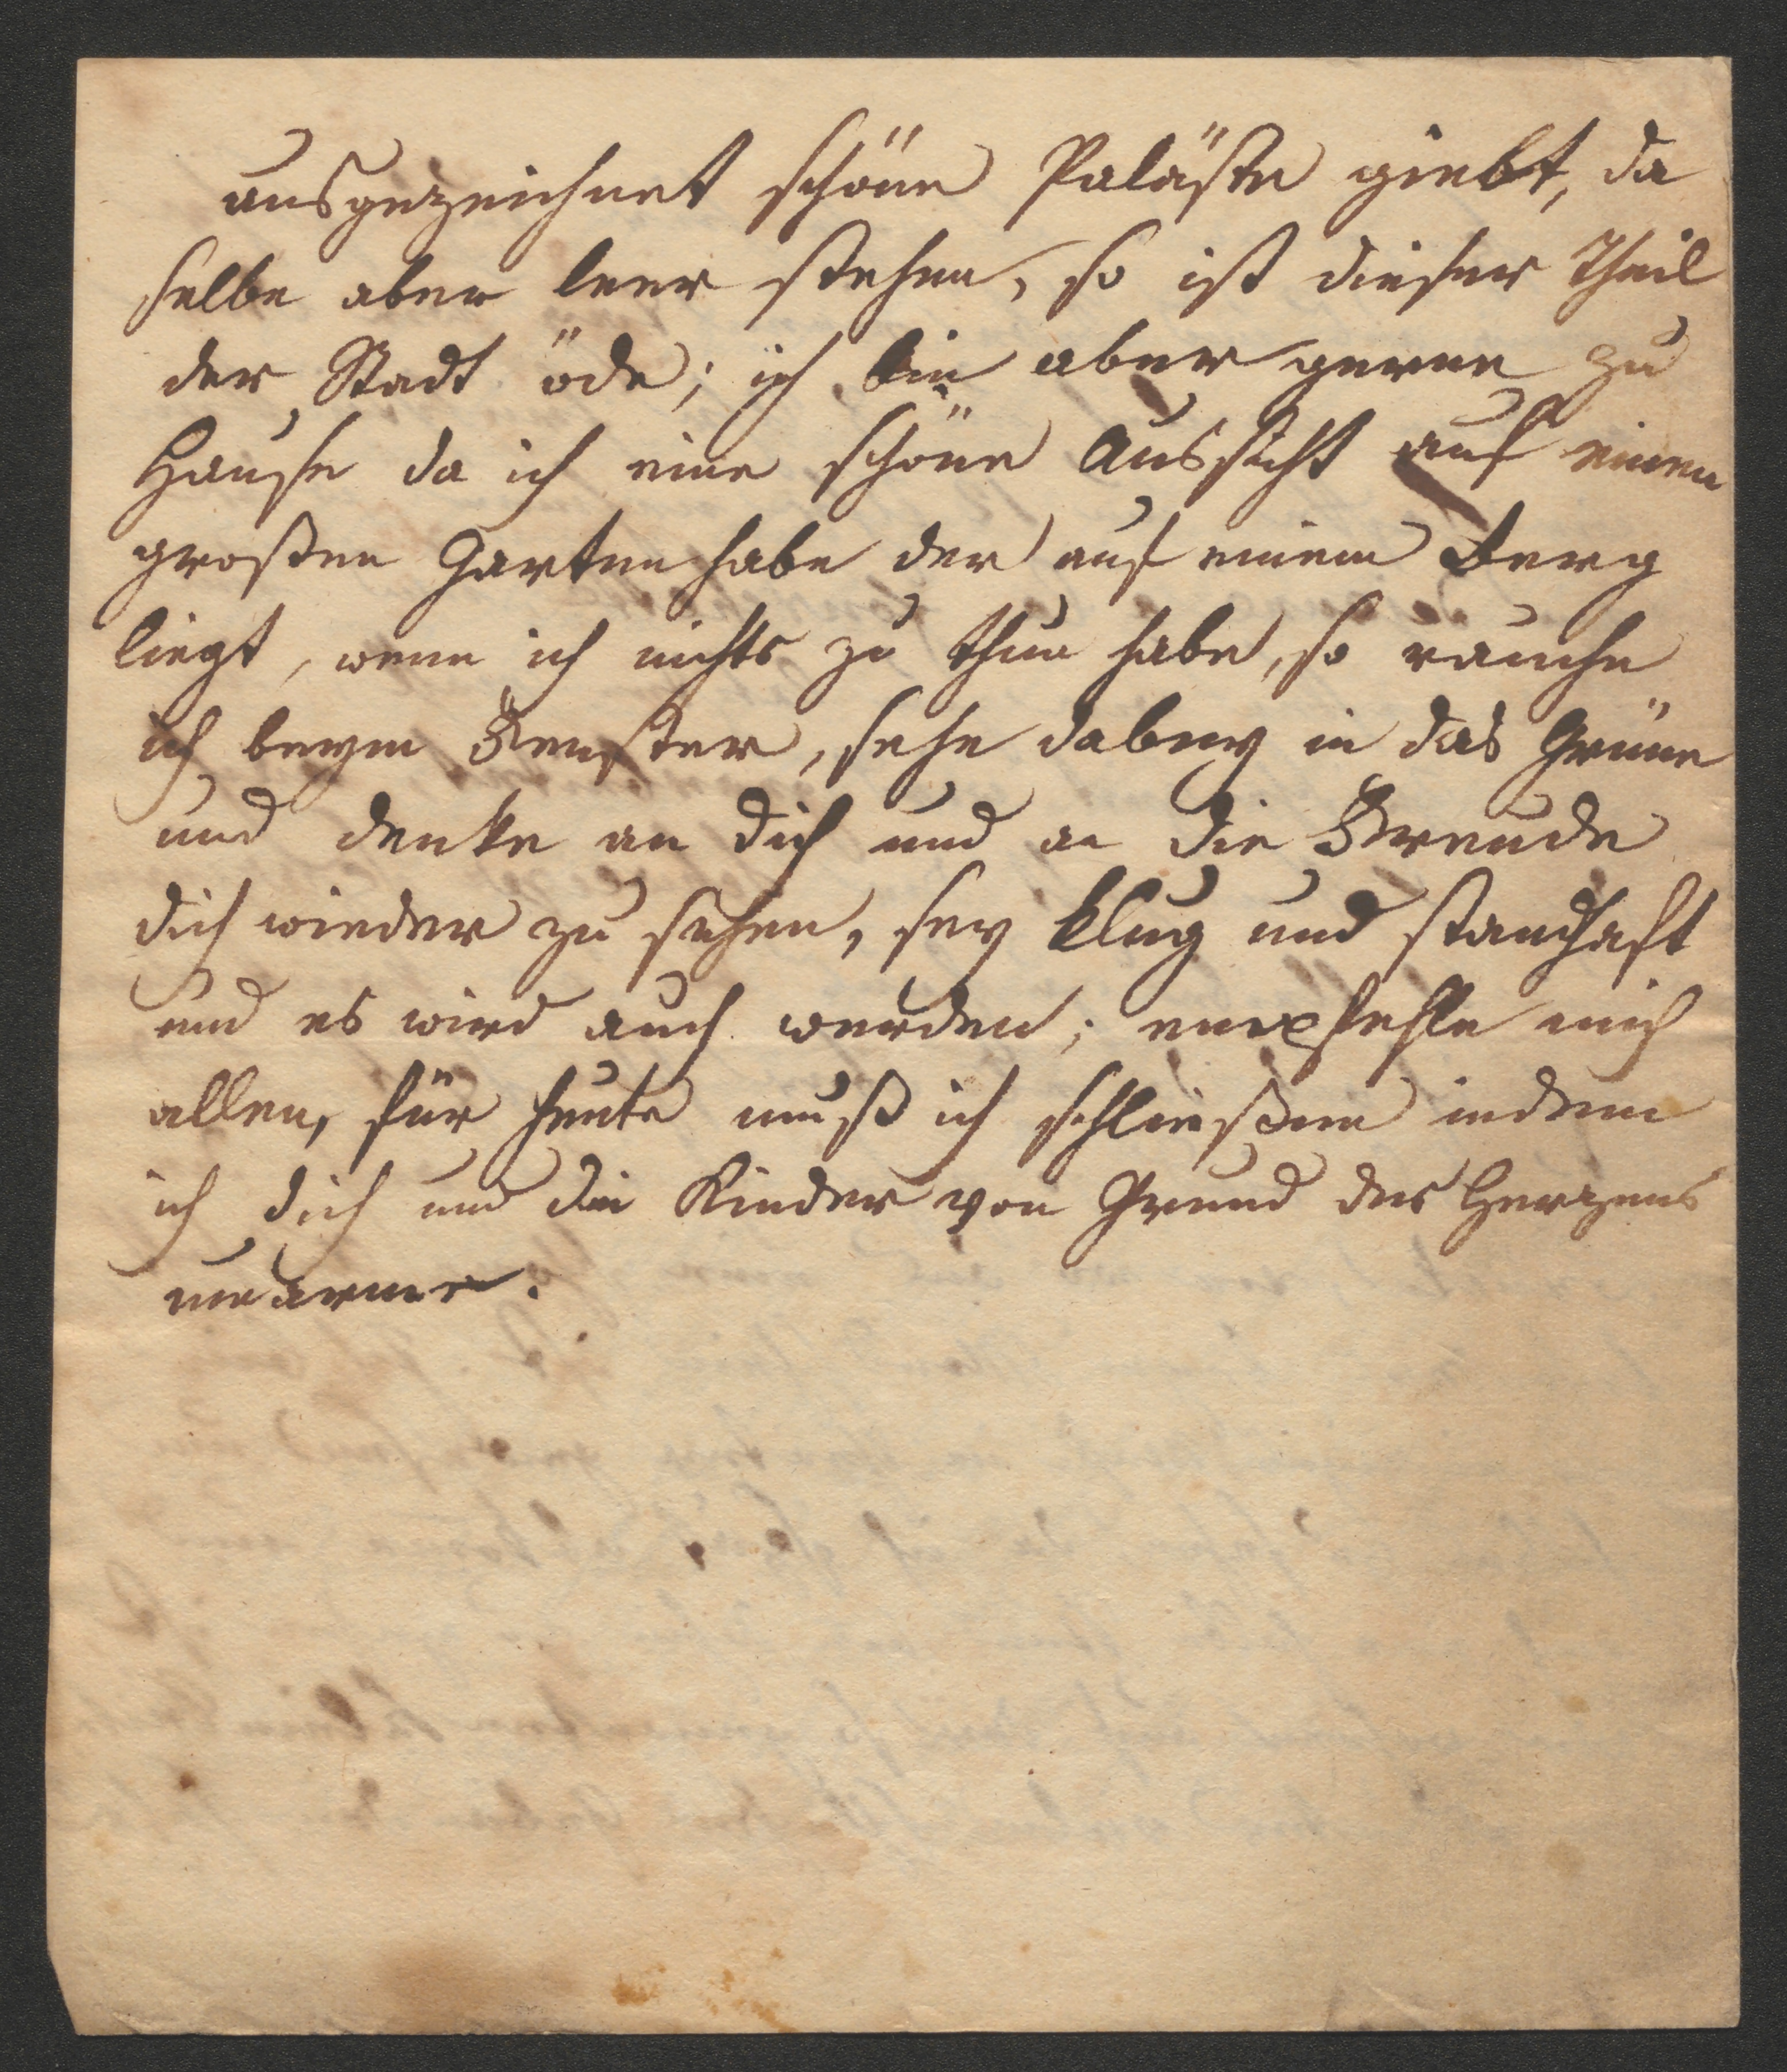 ausgezeichnet schöne Paläste giebt, da
selbe aber leer stehen, so ist dieser Theil
der Stadt öde; ich bin aber gerne zu
Hause da ich eine schöne Aussicht auf einen
großen Garten habe der auf einem Berg
liegt, wenn ich nichts zu thun habe, so rauche
ich beym Fenster, sehe dabey in das Grüne
und denke an dich und an die Freude
dich wieder zu sehen, sey klug und standhaft
und es wird auch werden; empfehle mich
allen, für heute muß ich schließen indem
ich dich und die Kinder von Grund des Herzens
umarme.